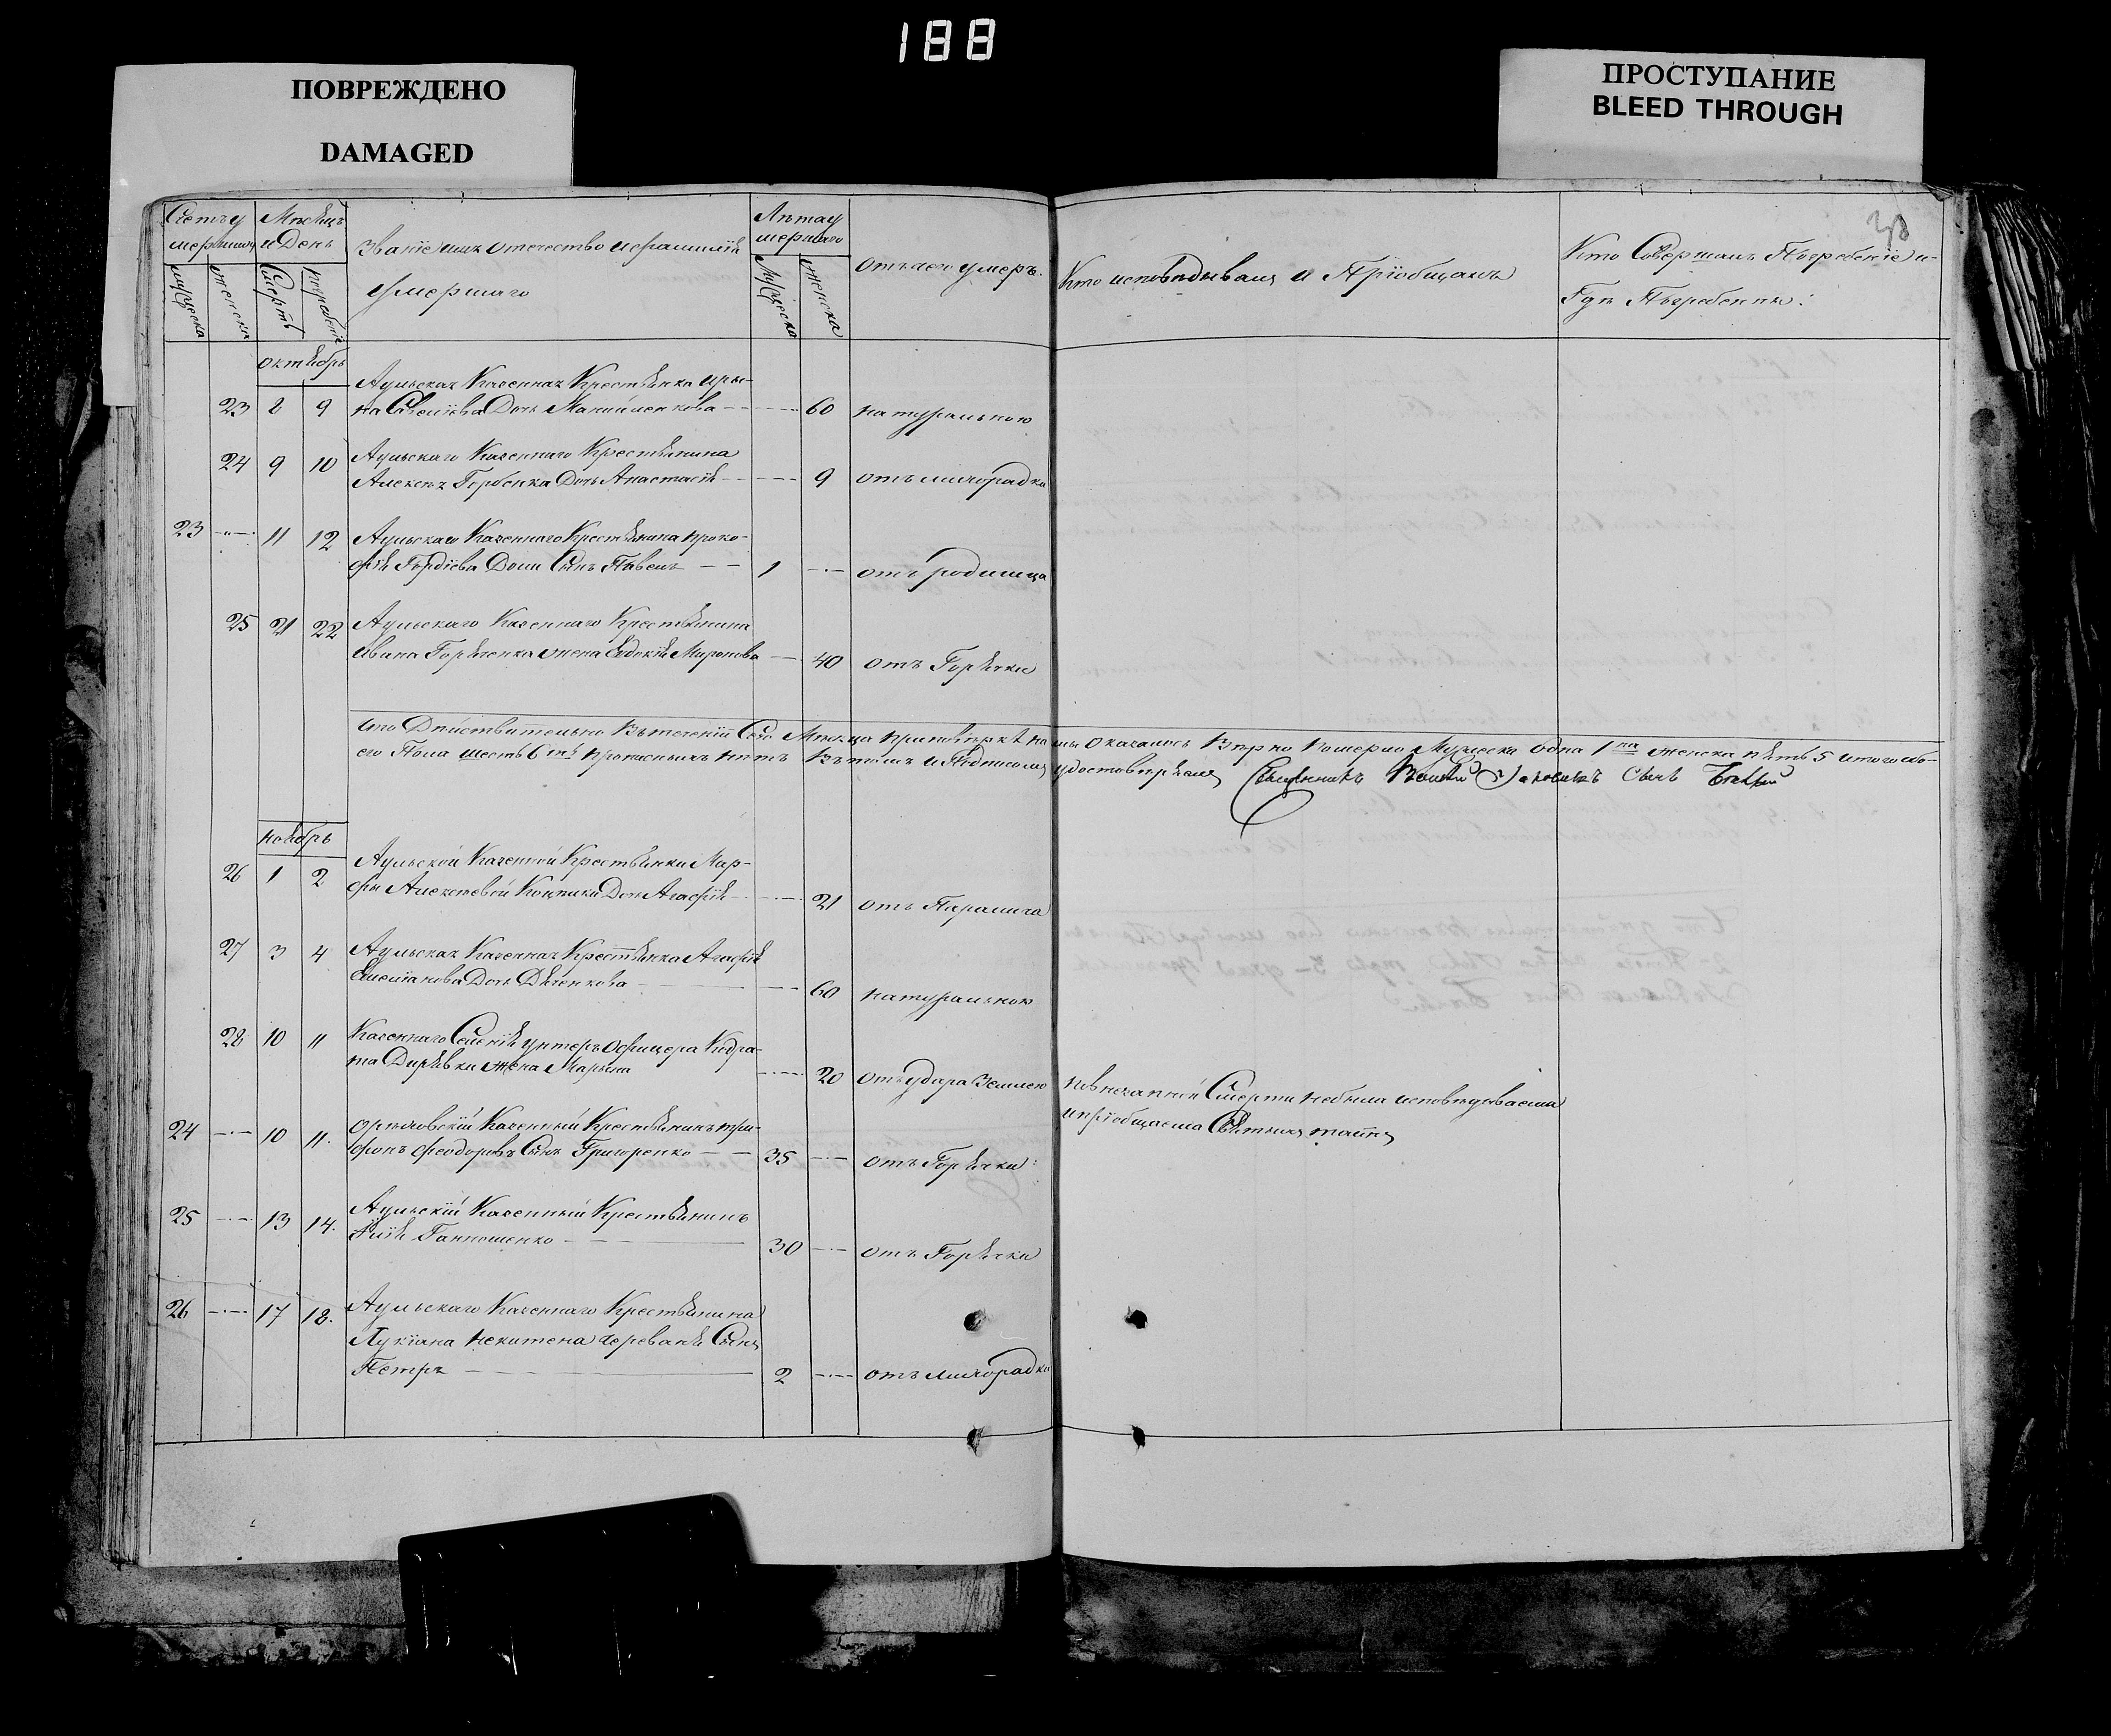 188
ПОВРЕЖДЕНО
DAMAGED
ПРОСТУПАНИЕ
BLEED THROUGH
Счетъ у
мершихъ
Мѣсяцъ
и День
мужеска
женска
Смерть
погребенїя
Званїе имя отечество и фамилїя
Умершаго
Лѣта у
мершаго
Мужеска
женска
Отъ чего умеръ.
Кто исповѣдывалъ и Прїобщалъ
Кто Совершалъ Погребенїе и
Гдѣ Погребенны:
октябрь
Аульская Казенная Крестьянка Ири-
23 8 9 на Савелїева Дочь Манойленкова 60 натуральною
24 9 10 Аульскаго Казеннаго Крестьянина
Алексѣя Горбенка Дочь Анастасїя 9 отъ лихорадки
23 11 12 Аульскаго Казеннаго Крестьянина проко-
фїя Гордїева Сынъ Павелъ 1 отъ родимца
25 21 22 Аульскаго Казеннаго Крестьянина
Ивана Горяченка жена Евдокїя Миронова 40 отъ Горячки
что Дѣйствительно Въ теченїи Сего Мѣсяца при повѣркѣ нами оказалось Вѣрно померло Мужеска одна 1 женска пять 5 итого обо-
его Пола шесть 6 пропасныхъ нѣтъ Въ томъ и Подписомъ удостовѣряемъ Священникъ Сынъ
ноябрь
Аульской Казенной Крестьянки Мар-
26 1 2 фы Алексѣевой Дочь Агафїя 21 отъ Паралича
27 3 4 Аульская Казенная Крестьянка Агафїя
Емелїанова Дочь Дяченкова 60 натуральною
28 10 11 Казеннаго Селенїя унтеръ офицера Кодра-
та Дирявки жена Марьина 20 отъ удара Землею
по Внезапной Смерти небыла исповѣдываема
и прїобщаема Святыхъ таинъ
24 10 11. Орѣховскїй Казенный Крестьянинъ три-
фонъ Феодоровъ Сынъ Григоренко 35 отъ Горячки
25 13 14. Аульскїй Казенный Крестьянинъ
Илїя Ганношенко 30 отъ Горячки
26 17 18. Аульскаго Казеннаго Крестьянина
Лукїана Череваня Сынъ
Петръ 2 отъ лихорадки